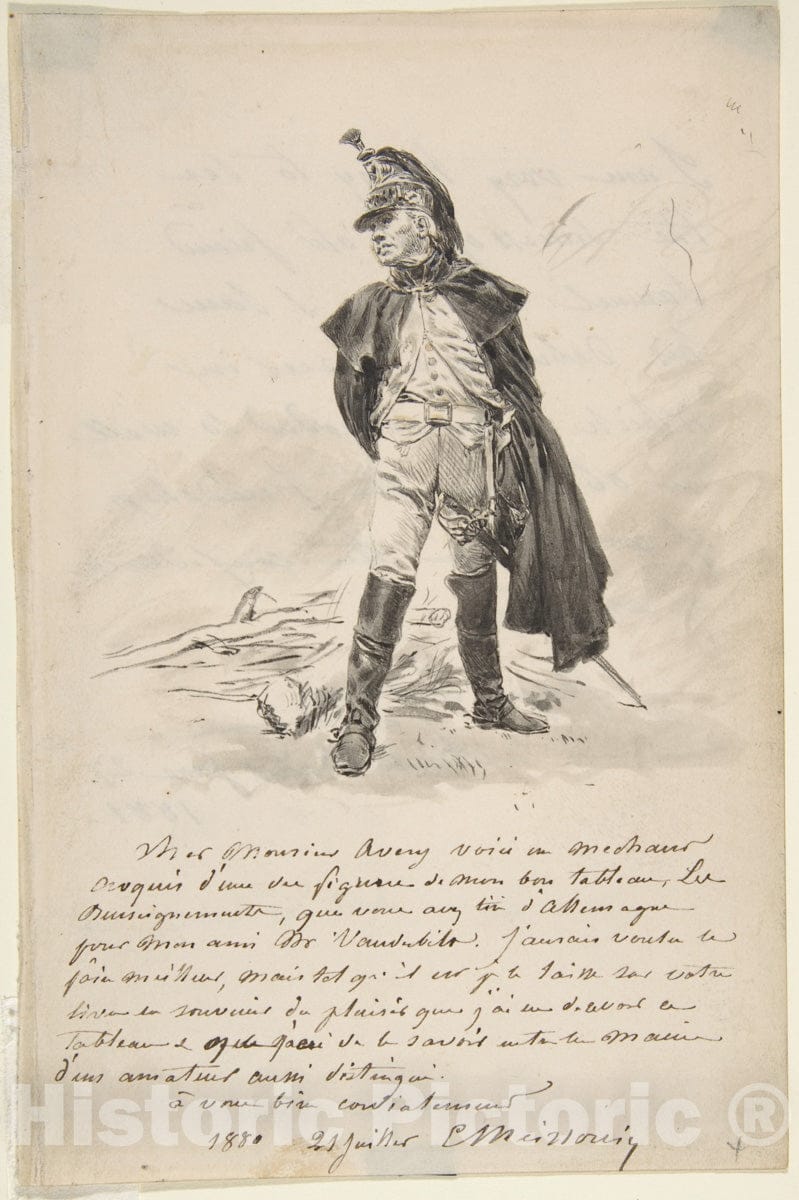 Cher Monsieur Avery voici un mechant
croquis d'une des figures de mon bon tableau, Les
Renseignements, que vous avez tiré d'Allemagne
pour mon ami Mr Vanderbilt. J'aurais voulu le
faire meilleur, mais tel qu'il est je le laisse sur votre
livre en souvenir du plaisir que j'ai eu de revoir ce
tableau et de le savoir entre les mains
d'un amateur aussi distingué.
à vous bien cordialement
1880 21 Juillet EMeissonier
Historic Pictoric ®